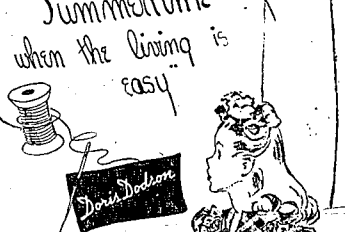 Summertime
when the living is
easy"
Doris Dodson